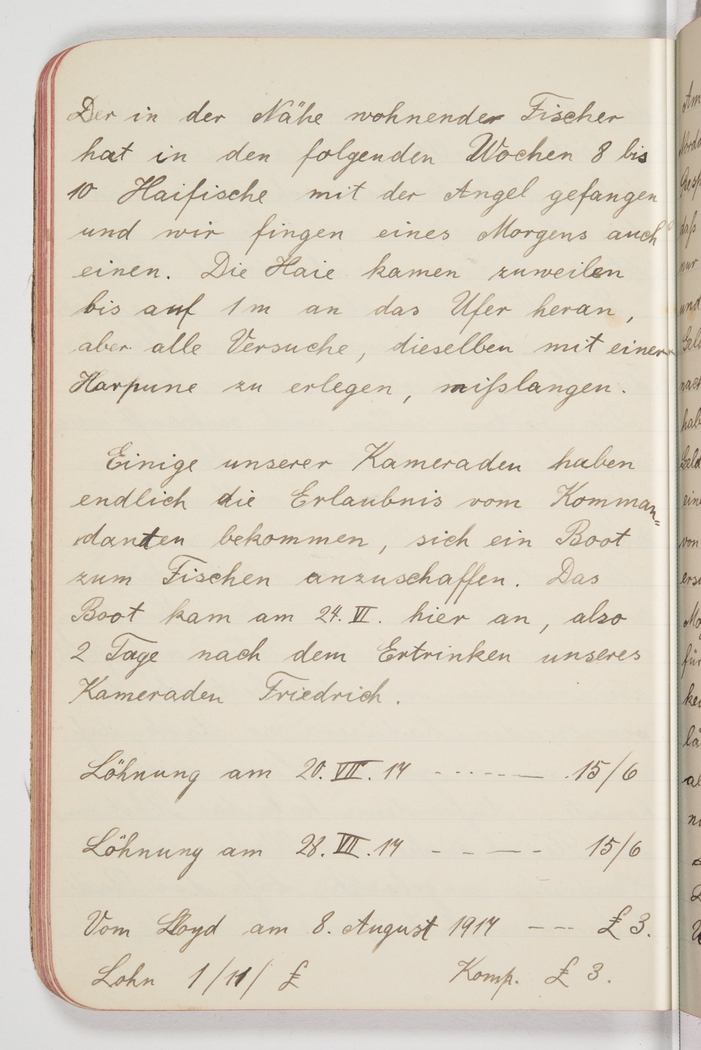 Der in der Nähe wohnender Fischer
hat in den folgenden Wochen 8 bis
10 Haifische mit der Angel gefangen
und wir fingen eines Morgens auch
einen. Die Haie kamen zuweilen
bis auf 1 m an das Ufer heran,
aber alle Versuche, dieselben mit einer
Harpune zu erlegen, mißlangen.
Einige unserer Kameraden haben
endlich die Erlaubnis vom Komman=
danten bekommen, sich ein Boot
zum Fischen anzuschaffen. Das
Boot kam am 24. VI. hier an, also
2 Tage nach dem Ertrinken unseres
Kameraden Friedrich.
Löhnung am 20. VII. 17 - - - - - - 15/6
Löhnung am 28. VII. 17 - - - - - 15/6
Vom Lloyd am 8. August 1917 - - - £ 3.
Lohn 1/11/ £ Komp. £ 3.